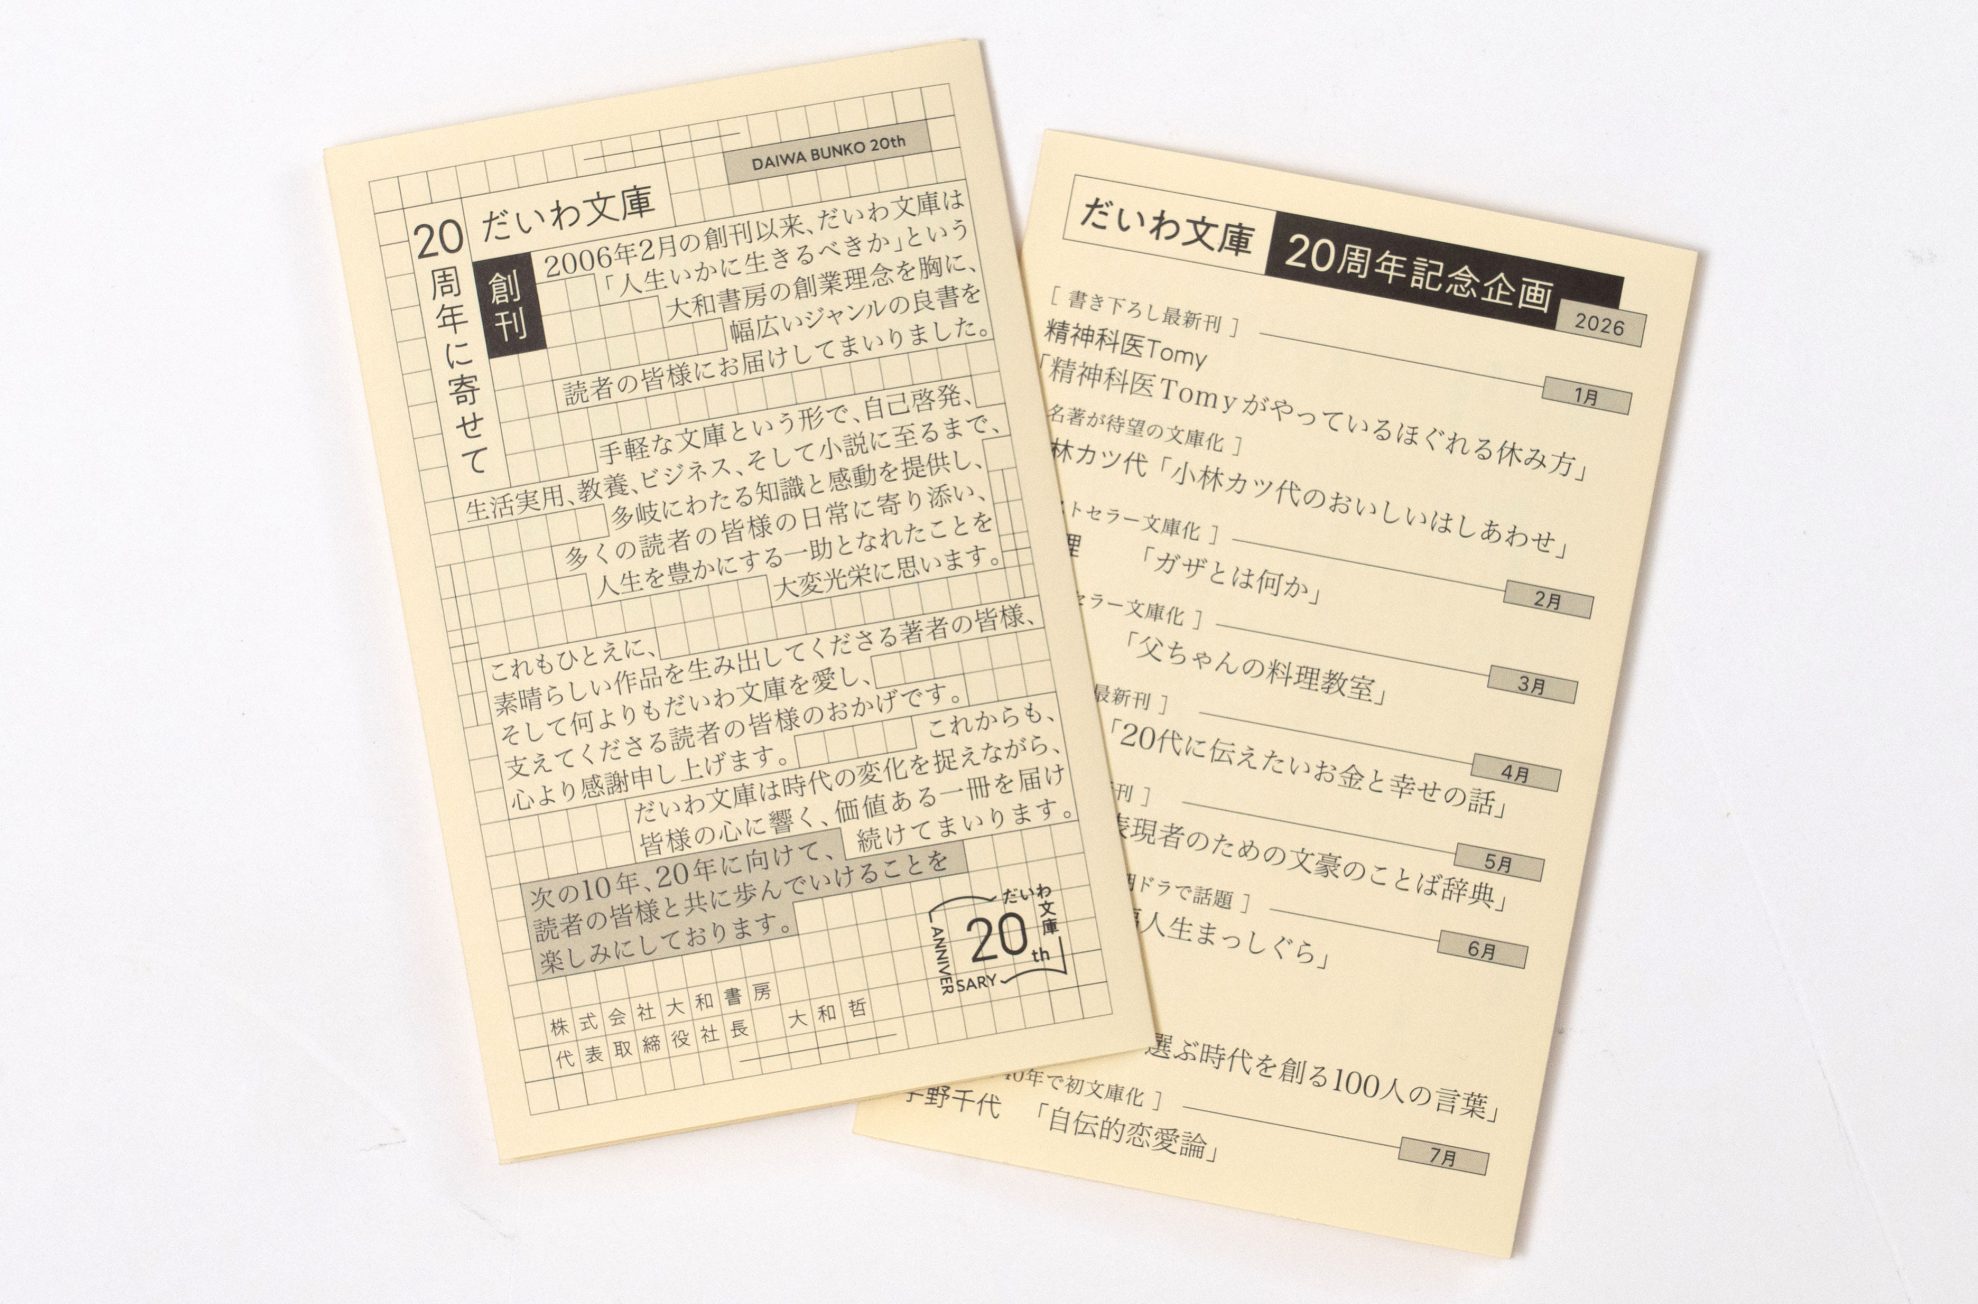 DAIWA BUNKO 20th
だいわ文庫
創刊
20周年に寄せて
2006年2月の創刊以来、だいわ文庫は
「人生いかに生きるべきか」という
大和書房の創業理念を胸に、
幅広いジャンルの良書を
読者の皆様にお届けしてまいりました。
手軽な文庫という形で、自己啓発、
生活実用、教養、ビジネス、そして小説に至るまで、
多岐にわたる知識と感動を提供し、
多くの読者の皆様の日常に寄り添い、
人生を豊かにする一助となれたことを
大変光栄に思います。
これもひとえに、
素晴らしい作品を生み出してくださる著者の皆様、
そして何よりもだいわ文庫を愛し、
支えてくださる読者の皆様のおかげです。
心より感謝申し上げます。
これからも、
だいわ文庫は時代の変化を捉えながら、
皆様の心に響く、価値ある一冊を届け
続けてまいります。
次の10年、20年に向けて、
読者の皆様と共に歩んでいけることを
楽しみにしております。
株式会社大和書房
代表取締役社長 大和哲
だいわ文庫
20th
ANNIVERSARY
だいわ文庫 20周年記念企画
2026
[ 書き下ろし最新刊 ]
1月
精神科医Tomy
「精神科医Tomyがやっているほぐれる休み方」
名著が待望の文庫化 ]
林カツ代「小林カツ代のおいしいはしあわせ」
トセラー文庫化 ]
2月
理 「ガザとは何か」
セラー文庫化 ]
3月
「父ちゃんの料理教室」
最新刊 ]
4月
「20代に伝えたいお金と幸せの話」
刊 ]
5月
表現者のための文豪のことば辞典」
ドラで話題 ]
6月
人生まっしぐら」
選ぶ時代を創る100人の言葉」
40年で初文庫化 ]
7月
宇野千代 「自伝的恋愛論」